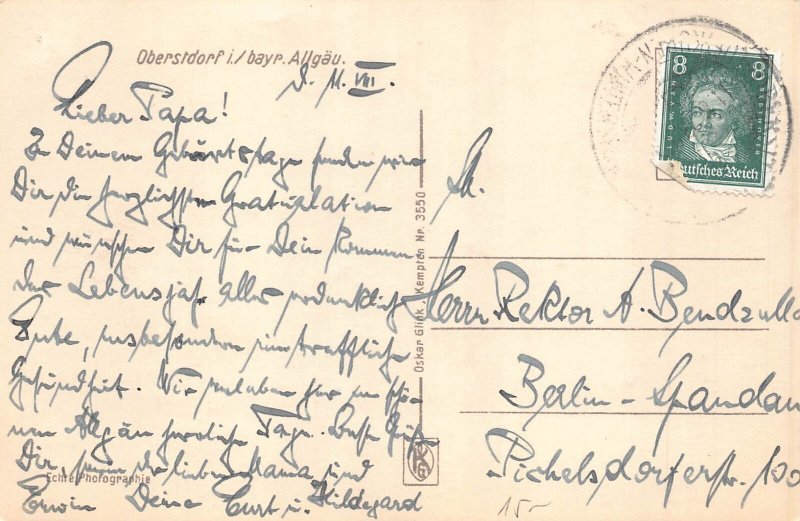 Oberstdorf i./bayr. Allgäu.
d. 11. VIII.
Lieber Papa!
Zu Deinem Geburtstage senden wir
Dir die herzlichsten Gratulation
und wünschen Dir für Dein
das Lebensjahr alles
Gute, insbesondere
Gesundheit. Wir verleben hier im schö-
nen Allgäu herrliche Tage. Beste Grüße
Dir, der lieben Mama und
Erwin Deine Curt u. Hildegard
Echte Photographie
Oskar Glink, Kempten Nr. 3550
8 8
LUDW. VAN BEETHOVEN
Deutsches Reich
Herrn Rektor A. Bendzulla
Berlin-Spandau
Pichelsdorferstr. 100
15-